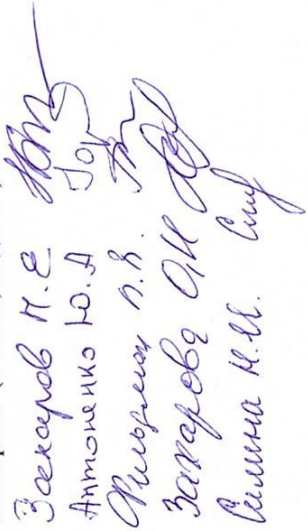 Захаров М.Е
Антоненко Ю.А
Фильрман П.Я.
Захарова О,И
Силина М.И.